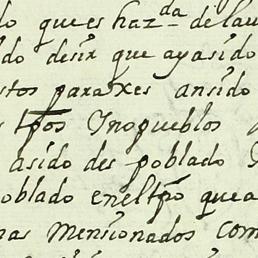 do que es haz.da de lau
ido desir que aya sido
stos paraxes an sido
s tpos Ino pueblos
asido des poblado
oblado en el tpo que a
nas mensionados com